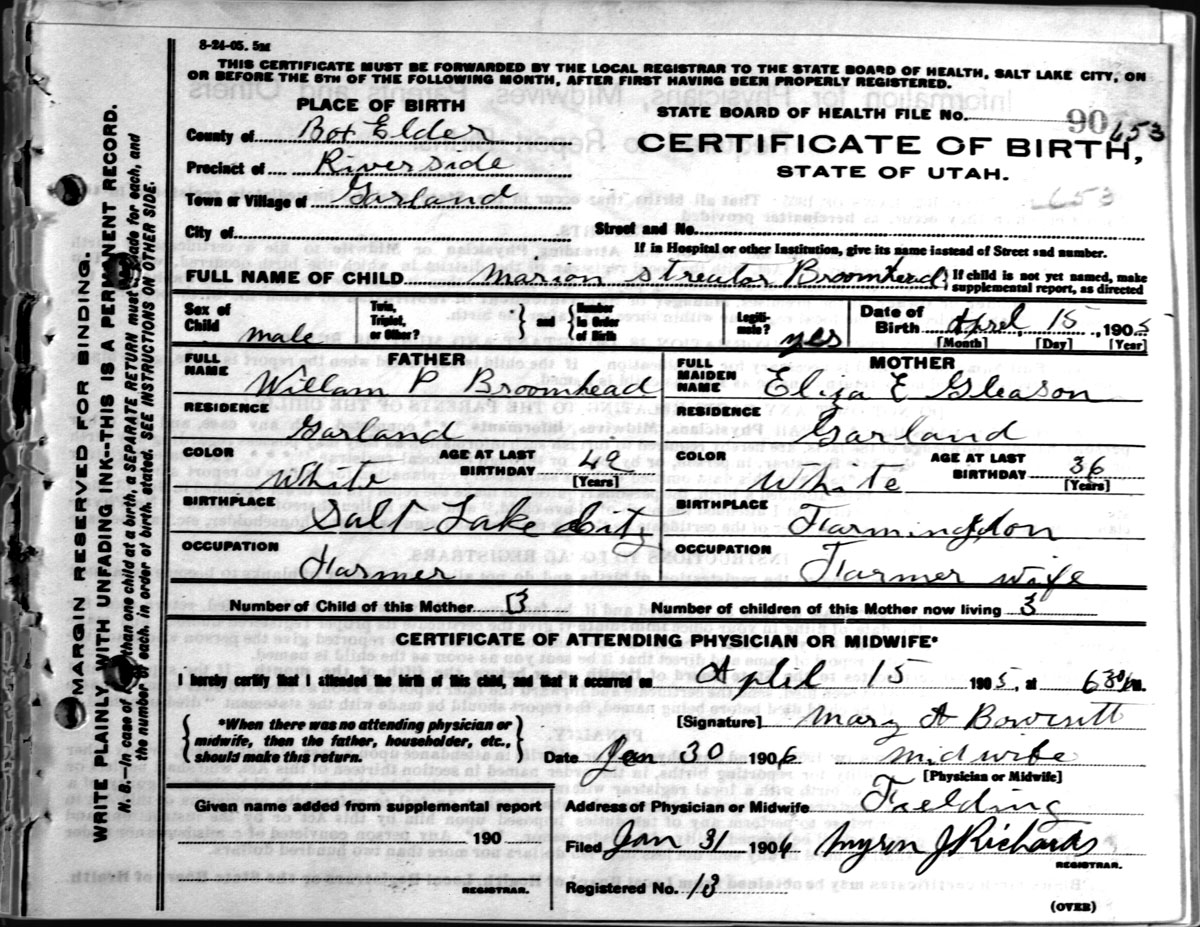 8-24-05. 5M
THIS CERTIFICATE MUST BE FORWARDED BY THE LOCAL REGISTRAR TO THE STATE BOARD OF HEALTH, SALT LAKE CITY, ON
OR BEFORE THE 5TH OF THE FOLLOWING MONTH, AFTER FIRST HAVING BEEN PROPERLY REGISTERED.
PLACE OF BIRTH
STATE BOARD OF HEALTH FILE No. 90 653
County of Box Elder
CERTIFICATE OF BIRTH,
Precinct of Riverside
STATE OF UTAH.
Town or Village of Garland
653
City of
Street and No.
If in Hospital or other Institution, give its name instead of Street and number.
FULL NAME OF CHILD Marion Streator Broomhead } If child is not yet named, make supplemental report, as directed
Sex of Child male
Twin, Triplet, or Other? } and { Number in Order of Birth
Legitimate? yes
Date of Birth April 15, 1905
[Month] [Day] [Year]
FATHER
MOTHER
FULL NAME Willam P Broomhead
FULL MAIDEN NAME Eliza E Gleason
RESIDENCE Garland
RESIDENCE Garland
COLOR White AGE AT LAST BIRTHDAY 42 [Years]
COLOR White AGE AT LAST BIRTHDAY 36 [Years]
BIRTHPLACE Salt Lake City
BIRTHPLACE Farmingdon
OCCUPATION Farmer
OCCUPATION Farmer wife
Number of Child of this Mother 3 Number of children of this Mother now living 3
CERTIFICATE OF ATTENDING PHYSICIAN OR MIDWIFE*
I hereby certify that I attended the birth of this child, and that it occurred on Aplil 15 1905, at 6 30 M.
{ *When there was no attending physician or midwife, then the father, householder, etc., should make this return. }
[Signature] Mary A
Date Jan 30 1906 Midwife
[Physician or Midwife]
Given name added from supplemental report
Address of Physician or Midwife Fielding
190
Filed Jan 31 1906 Myron J Richards
REGISTRAR.
REGISTRAR.
Registered No. 13
(OVER)
MARGIN RESERVED FOR BINDING.
WRITE PLAINLY WITH UNFADING INK—THIS IS A PERMANENT RECORD.
N. B.—In case of than one child at a birth, a SEPARATE RETURN must made for each, and
the number of each, in order of birth, stated. SEE INSTRUCTIONS ON OTHER SIDE.